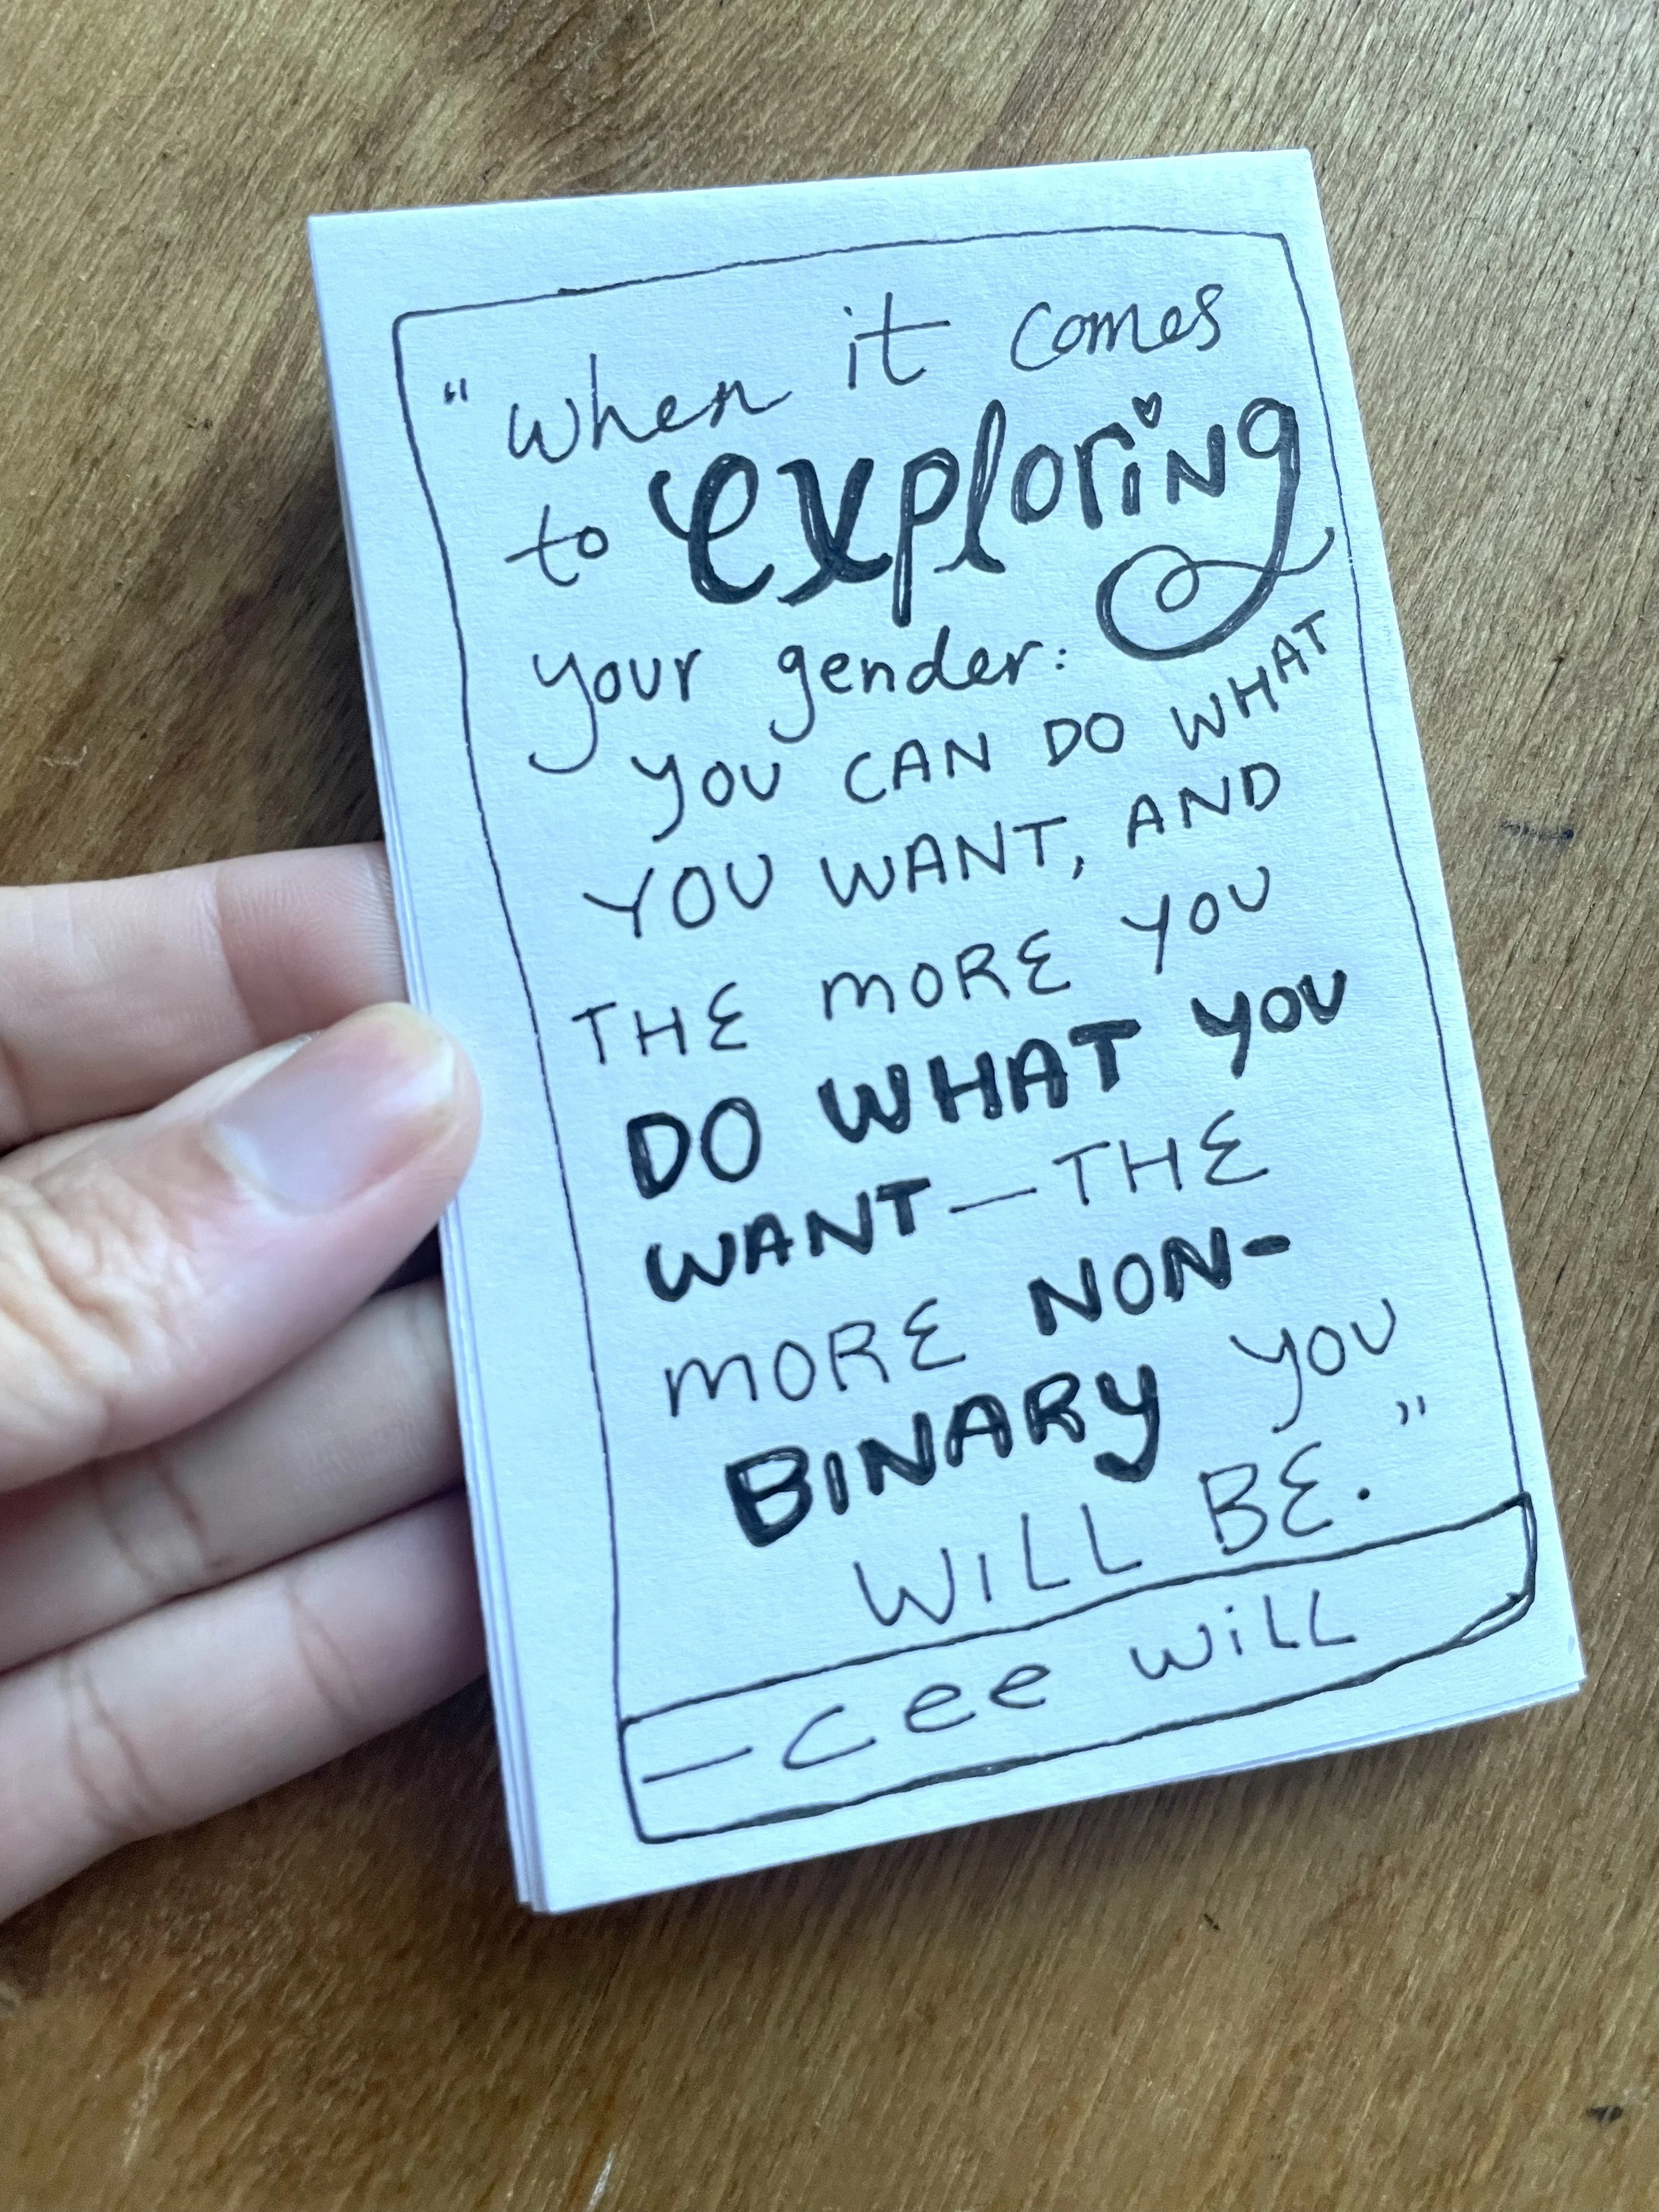 "when it comes
to exploring
your gender:
YOU CAN DO WHAT
YOU WANT, AND
THE MORE YOU
DO WHAT YOU
WANT—THE
MORE NON-
BINARY YOU
WILL BE."
—cee will